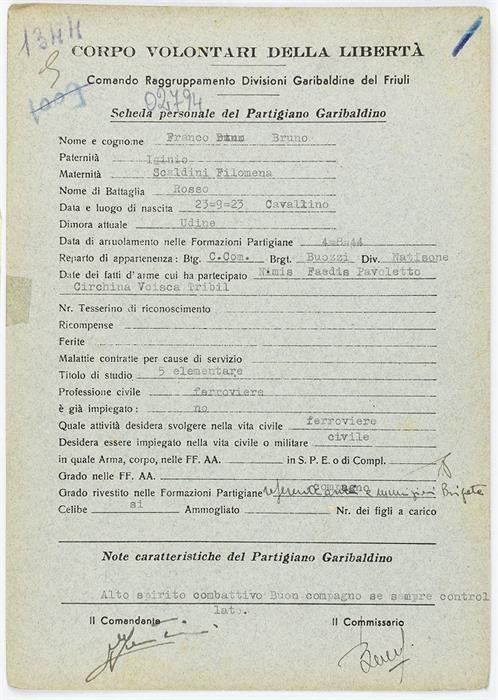 1344
CORPO VOLONTARI DELLA LIBERTÀ
Comando Raggruppamento Divisioni Garibaldine del Friuli
02794
Scheda personale del Partigiano Garibaldino
Nome e cognome Franco Bruno
Paternità Iginio
Maternità Scaldini Filomena
Nome di Battaglia Rosso
Data e luogo di nascita 23=9=23 Cavallino
Dimora attuale Udine
Data di arruolamento nelle Formazioni Partigiane 4=8=44
Reparto di appartenenza: Btg. C.Com. Brgt. Buozzi Div. Natisone
Date dei fatti d'arme cui ha partecipato Nimis Faedis Pavoletto
Circhina Voisca Tribil
Nr. Tesserino di riconoscimento
Ricompense
Ferite
Malattie contratte per cause di servizio
Titolo di studio 5 elementare
Professione civile ferroviere
è già impiegato: no
Quale attività desidera svolgere nella vita civile ferroviere
Desidera essere impiegato nella vita civile o militare civile
in quale Arma, corpo, nelle FF. AA. in S. P. E. o di Compl.
Grado nelle FF. AA.
Grado rivestito nelle Formazioni Partigiane compagno Brigata
Celibe si Ammogliato Nr. dei figli a carico
Note caratteristiche del Partigiano Garibaldino
Alto spirito combattivo Buon compagno se sempre control
lato.
Il Comandante Il Commissario